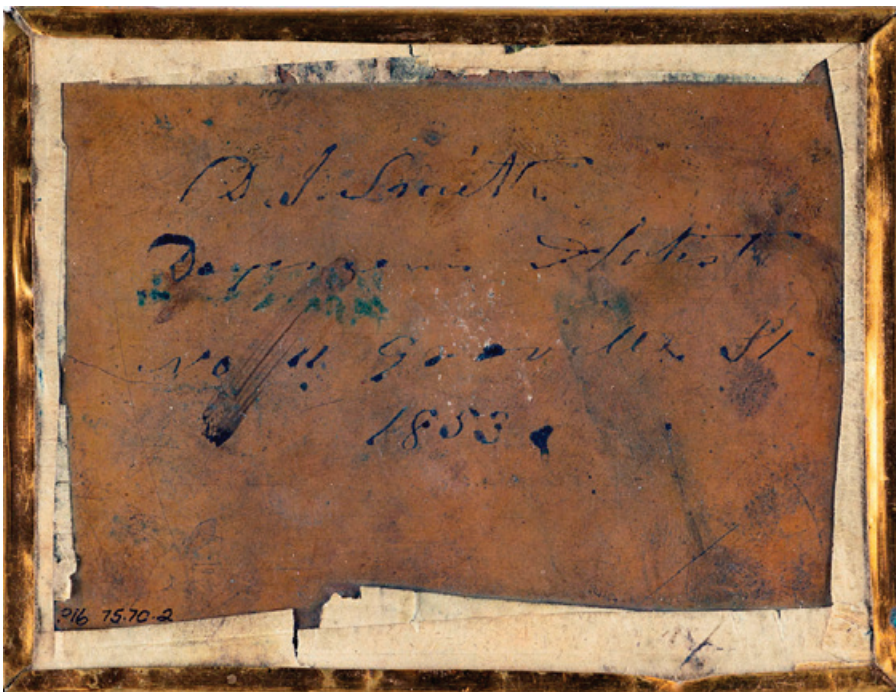 D. J. Smith
Daguerrean Artist
No 11 Granville St.
1853
P16 75.70.2